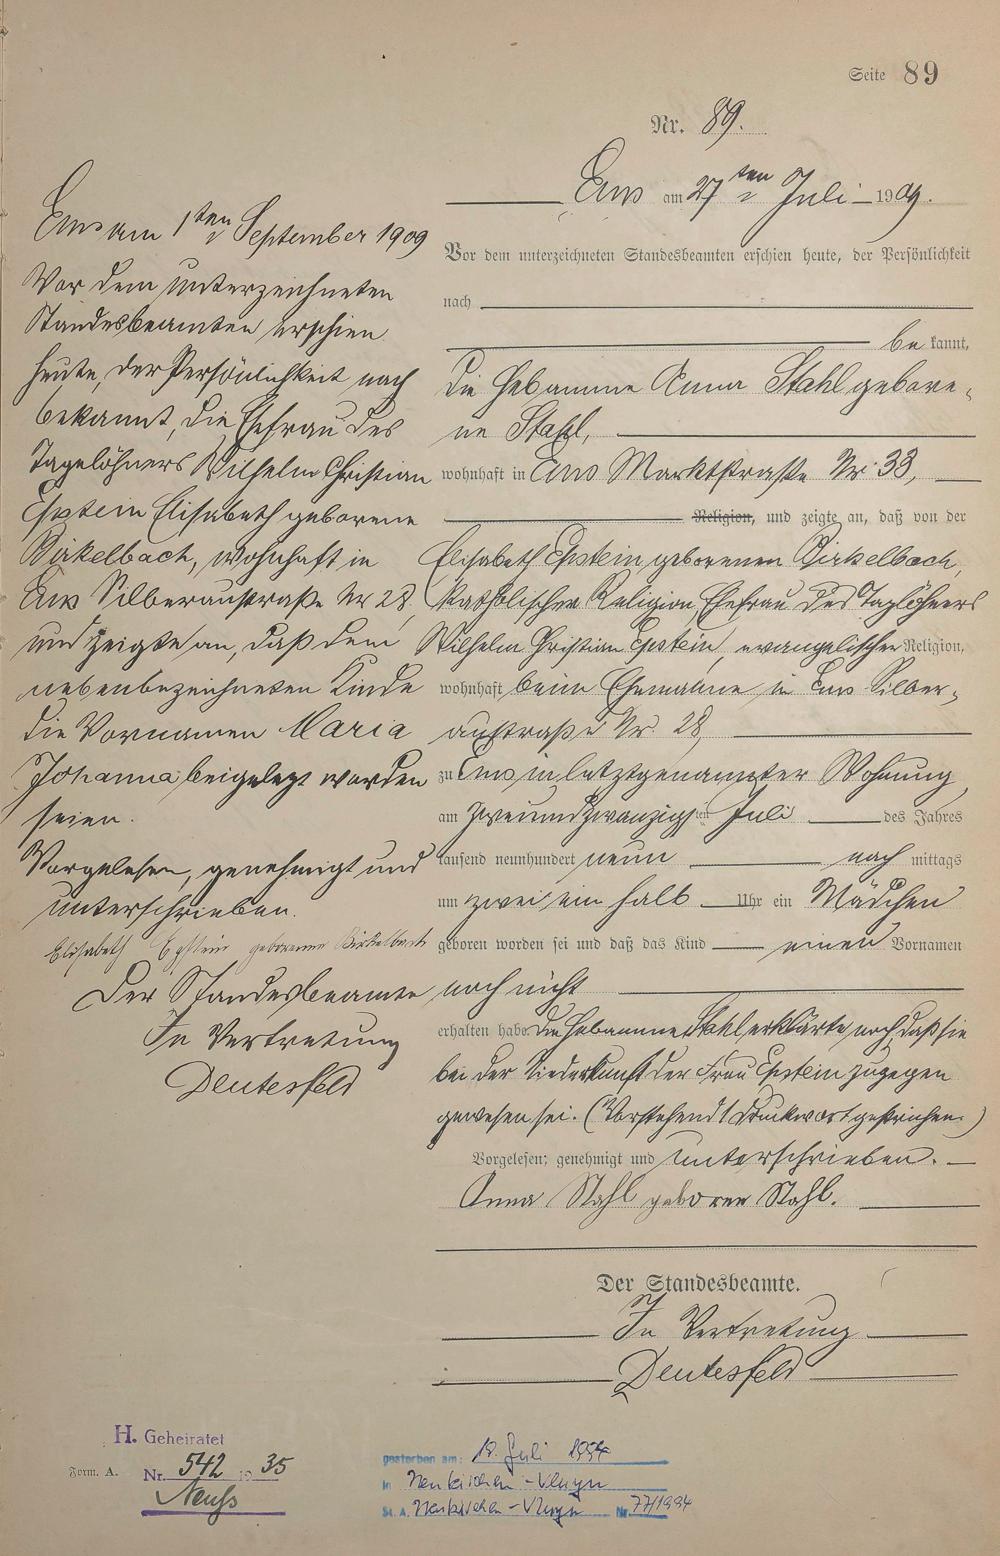 Seite 89
Nr. 89.
Ems am 27ten Juli 1909.
Vor dem unterzeichneten Standesbeamten erschien heute, der Persönlichkeit
nach
bekannt,
die Hebamme Anna Stahl gebore-
ne Stahl,
wohnhaft in Ems Marktstraße Nr 33,
Religion, und zeigte an, daß von der
Elisabeth Epstein geborenen Birkelbach,
katholischer Religion, Ehefrau des Taglöhners
Wilhelm Christian Epstein, evangelischer Religion,
wohnhaft beim Ehemanne in Ems Silber-
austraße Nr. 28,
zu Ems in letztgenannter Wohnung,
am zweiundzwanzigsten Juli des Jahres
tausend neunhundert neun nach mittags
um zwei ein halb Uhr ein Mädchen
geboren worden sei und daß das Kind einen Vornamen
noch nicht
erhalten habe. Die Hebamme Stahl erklärte noch, daß sie
bei der Niederkunft der Frau Epstein zugegen
gewesen sei. (Vorstehend 1 Druckwort gestrichen.)
Vorgelesen, genehmigt und unterschrieben.
Anna Stahl geboren Stahl.
Der Standesbeamte.
In Vertretung
Deutesfeld
Ems am 1ten September 1909
Vor dem unterzeichneten
Standesbeamten erschien
heute, der Persönlichkeit nach
bekannt, die Ehefrau des
Tagelöhners Wilhelm Christian
Epstein Elisabeth geborene
Birkelbach, wohnhaft in
Ems Silberaustraße Nr 28,
und zeigte an, daß dem
nebenbezeichneten Kinde
die Vornamen Maria
Johanna beigelegt worden
seien.
Vorgelesen, genehmigt und
unterschrieben.
Elisabeth Epstein geborenne Birkelbach
Der Standesbeamte
In Vertretung
Deutesfeld
H. Geheiratet
Form. A.
Nr. 542 1935
Neuß
gestorben am: 18. Juli 1994
in Neukirchen-Vluyn
St. A. Neukirchen-Vluyn Nr 77/1994